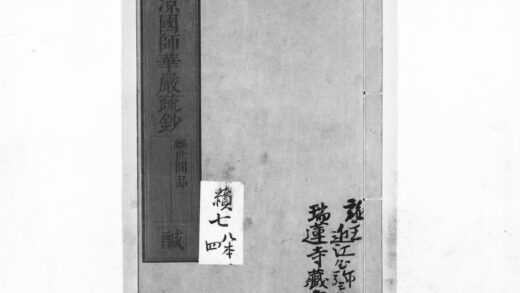 涼國師華嚴疏鈔
離世間品
鹹
續七
八本
四
近江公弥
瑞蓮寺藏